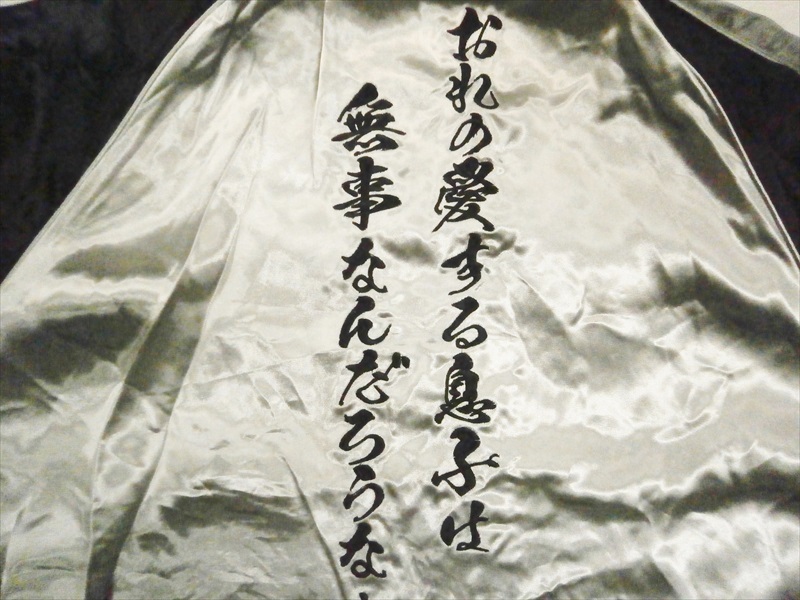 おれの愛する息子は
無事なんだろうな